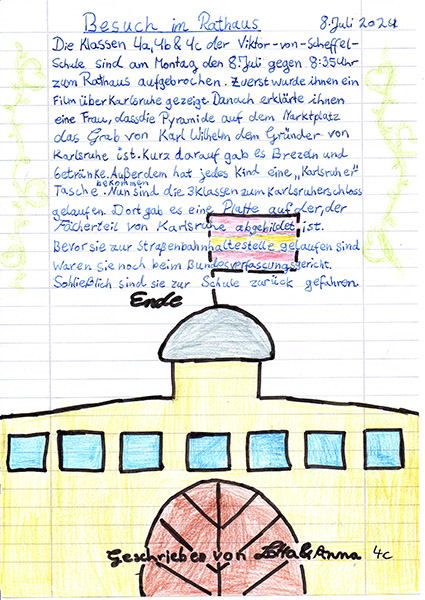 Besuch im Rathaus 8. Juli 2024
Die Klassen 4a, 4b & 4c der Viktor-von-Scheffel-
Schule sind am Montag den 8. Juli gegen 8:35 Uhr
zum Rathaus aufgebrochen. Zuerst wurde ihnen ein
Film über Karlsruhe gezeigt Danach erklärte ihnen
eine Frau, dass die Pyramide auf dem Marktplatz
das Grab von Karl Wilhelm dem Gründer von
Karlsruhe ist. Kurz darauf gab es Brezeln und
Getränke. Außerdem hat jedes Kind eine „Karlsruher"
Tasche bekommen. Nun sind die 3 Klassen zum Karlsruher schloss
gelaufen. Dort gab es eine Platte auf der, der
Fächerteil von Karlsruhe abgebildet ist.
Bevor sie zur Straßenbahnhaltestelle gelaufen sind
Waren sie noch beim Bundesverfassungsgericht.
Schließlich sind sie zur Schule zurück gefahren.
Ende
Geschrieben von & Anna 4c